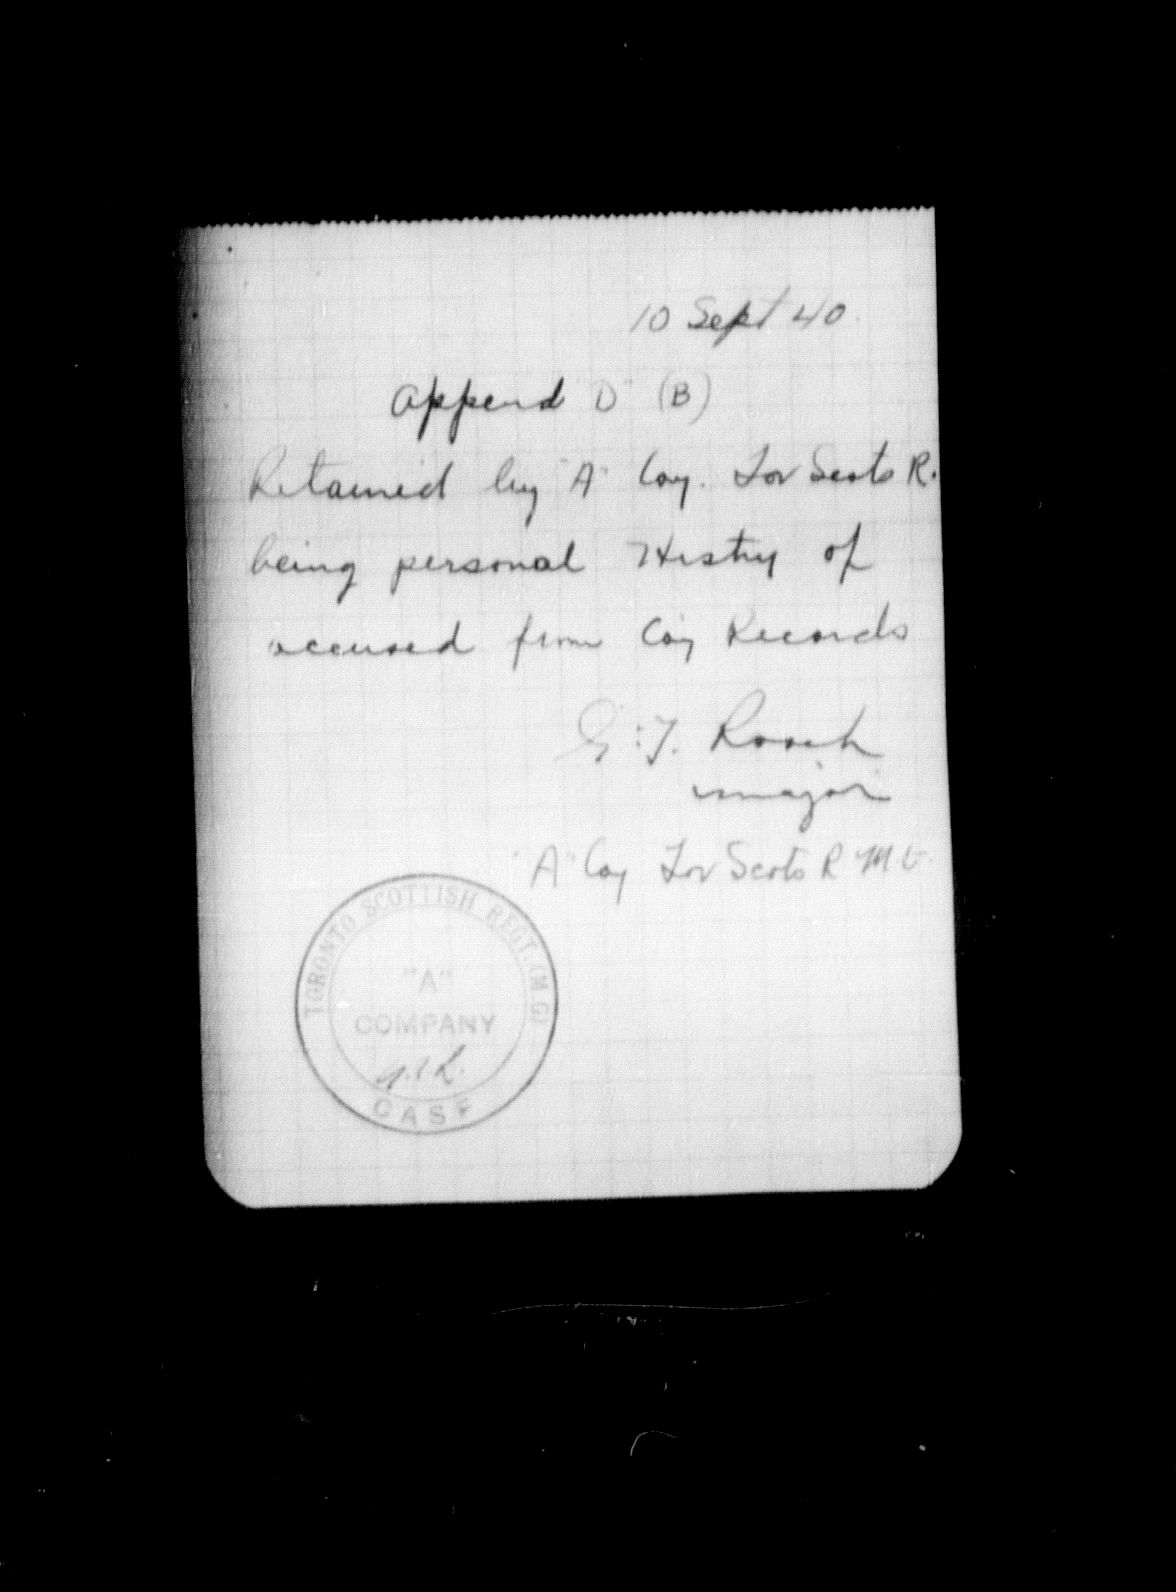 10 Sept 40
Append "D" (B)
Retained by "A" Coy. Tor Scots R.
being personal History of
accused from Coy Records
major
"A" Coy Tor Scots R M G
TORONTO SCOTTISH REGT. (M G)
"A"
COMPANY
CASF